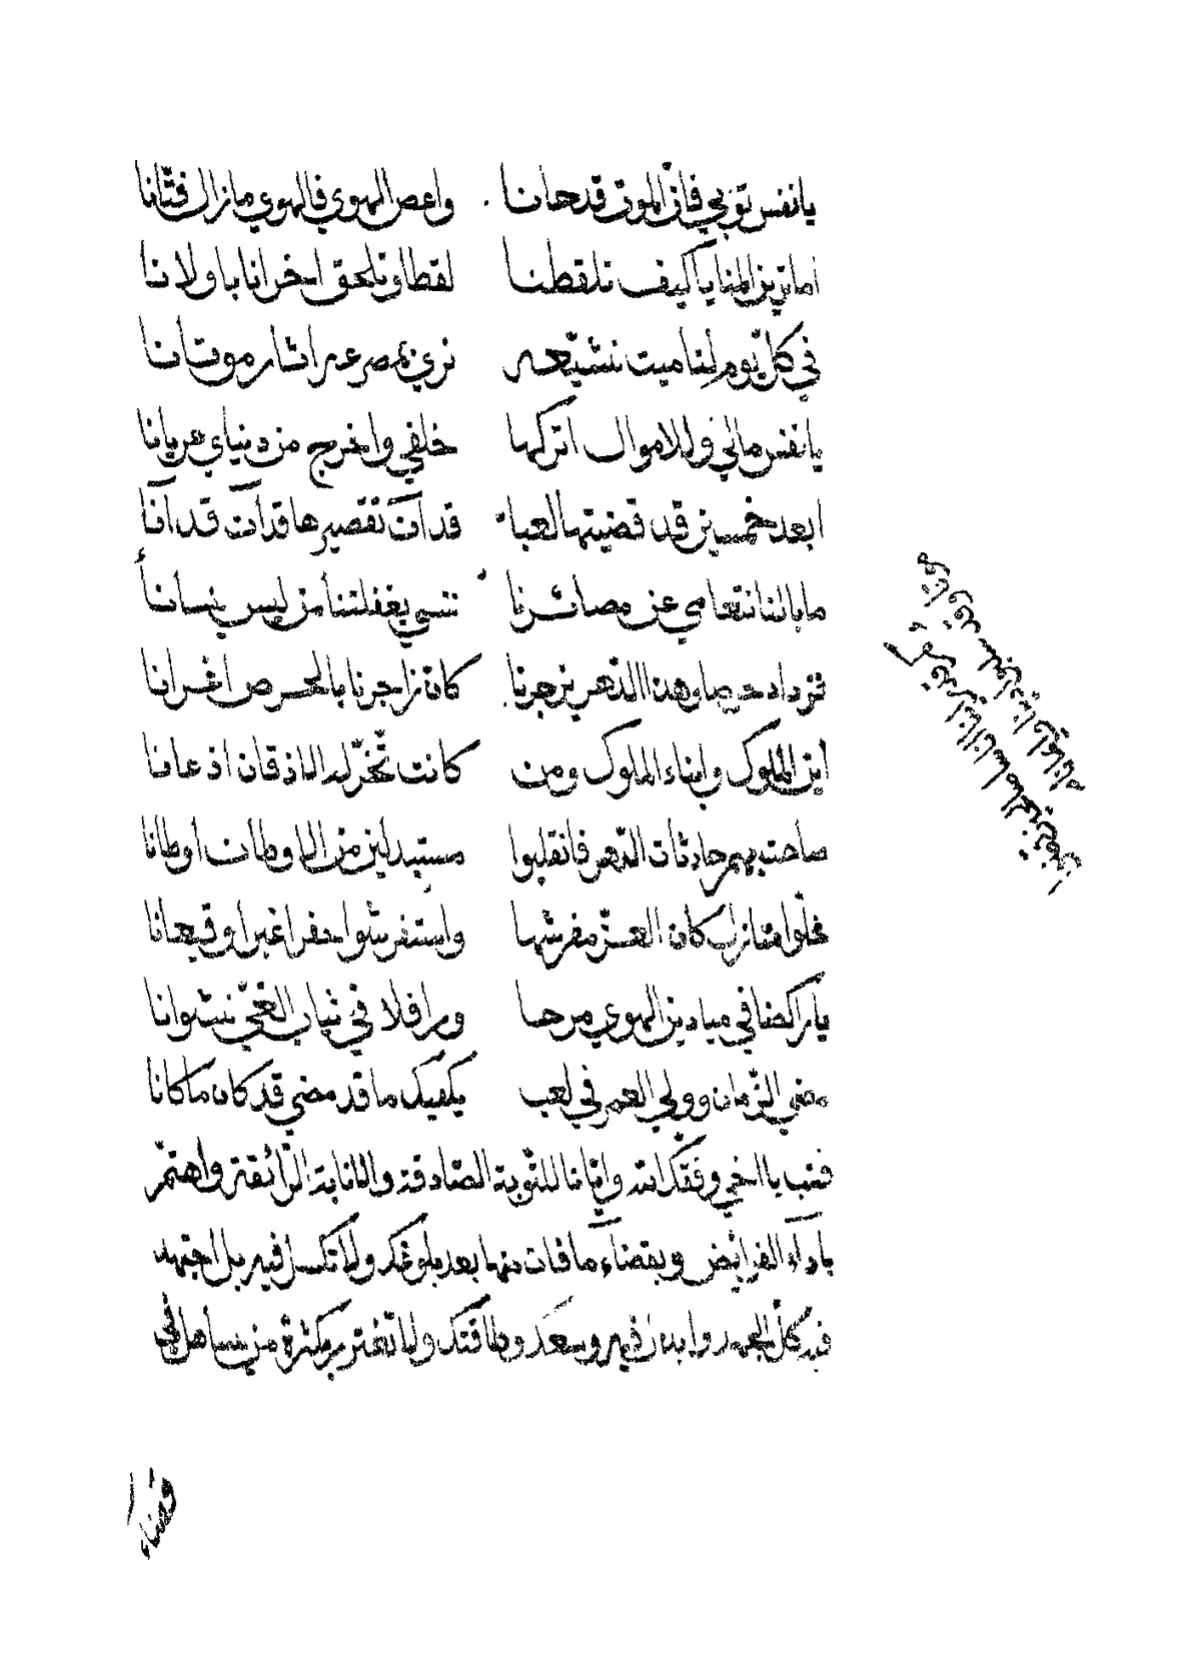 يا نفس توبي فانّ الموت قد حانا واعص الهوي فالهوي ما زال فتّانا
اما ترين المنايا كيف تلقطنا لقطا وتلحق اخرانا باولانا
في كلّ يوم لنا ميت نشيّعه نري بمصرعه اثار موتانا
يا نفس مالي وللاموال اتركها خلفي واخرج من دنياي عريانا
ابعد خمسين قد قضيتها لعبا قد آن تقصيرها قد آن قد آنا
ما بالنا نتعامي عن مصائرنا ننسي بغفلتنا من ليس ينسانا
نزداد حرصا وهذا الدّهر يزجرنا كان زاجرنا بالحرص اغرانا
اين الملوك وابناء الملوك ومن كانت تخرّ له الاذقان اذعانا
صاحت بهم حادثات الدّهر فانقلبوا مستبدلين من الاوطان اوطانا
خلّوا منازل كان العزّ مفرشها واستفرشوا حفرا غبرا وقيعانا
يا راكضا في ميادين الهوي مرحا ورافلا في ثياب الغيّ نشوانا
مضي الزّمان وولي العمر في لعب يكفيك ما قد مضي قد كان ما كانا
فتب يا اخي وفقك الله وايّانا للتّوبة الصّادقة والانابة الرّائقة واهتمّ
باداء الفرائض وبقضاء ما فات منها بعد بلوغك ولا تكسل فيه بل اجتهد
فيه كلّ الجهد وابذل فيه وسعك وطاقتك ولا تغتر بكثرة من يساهل في
قضاء